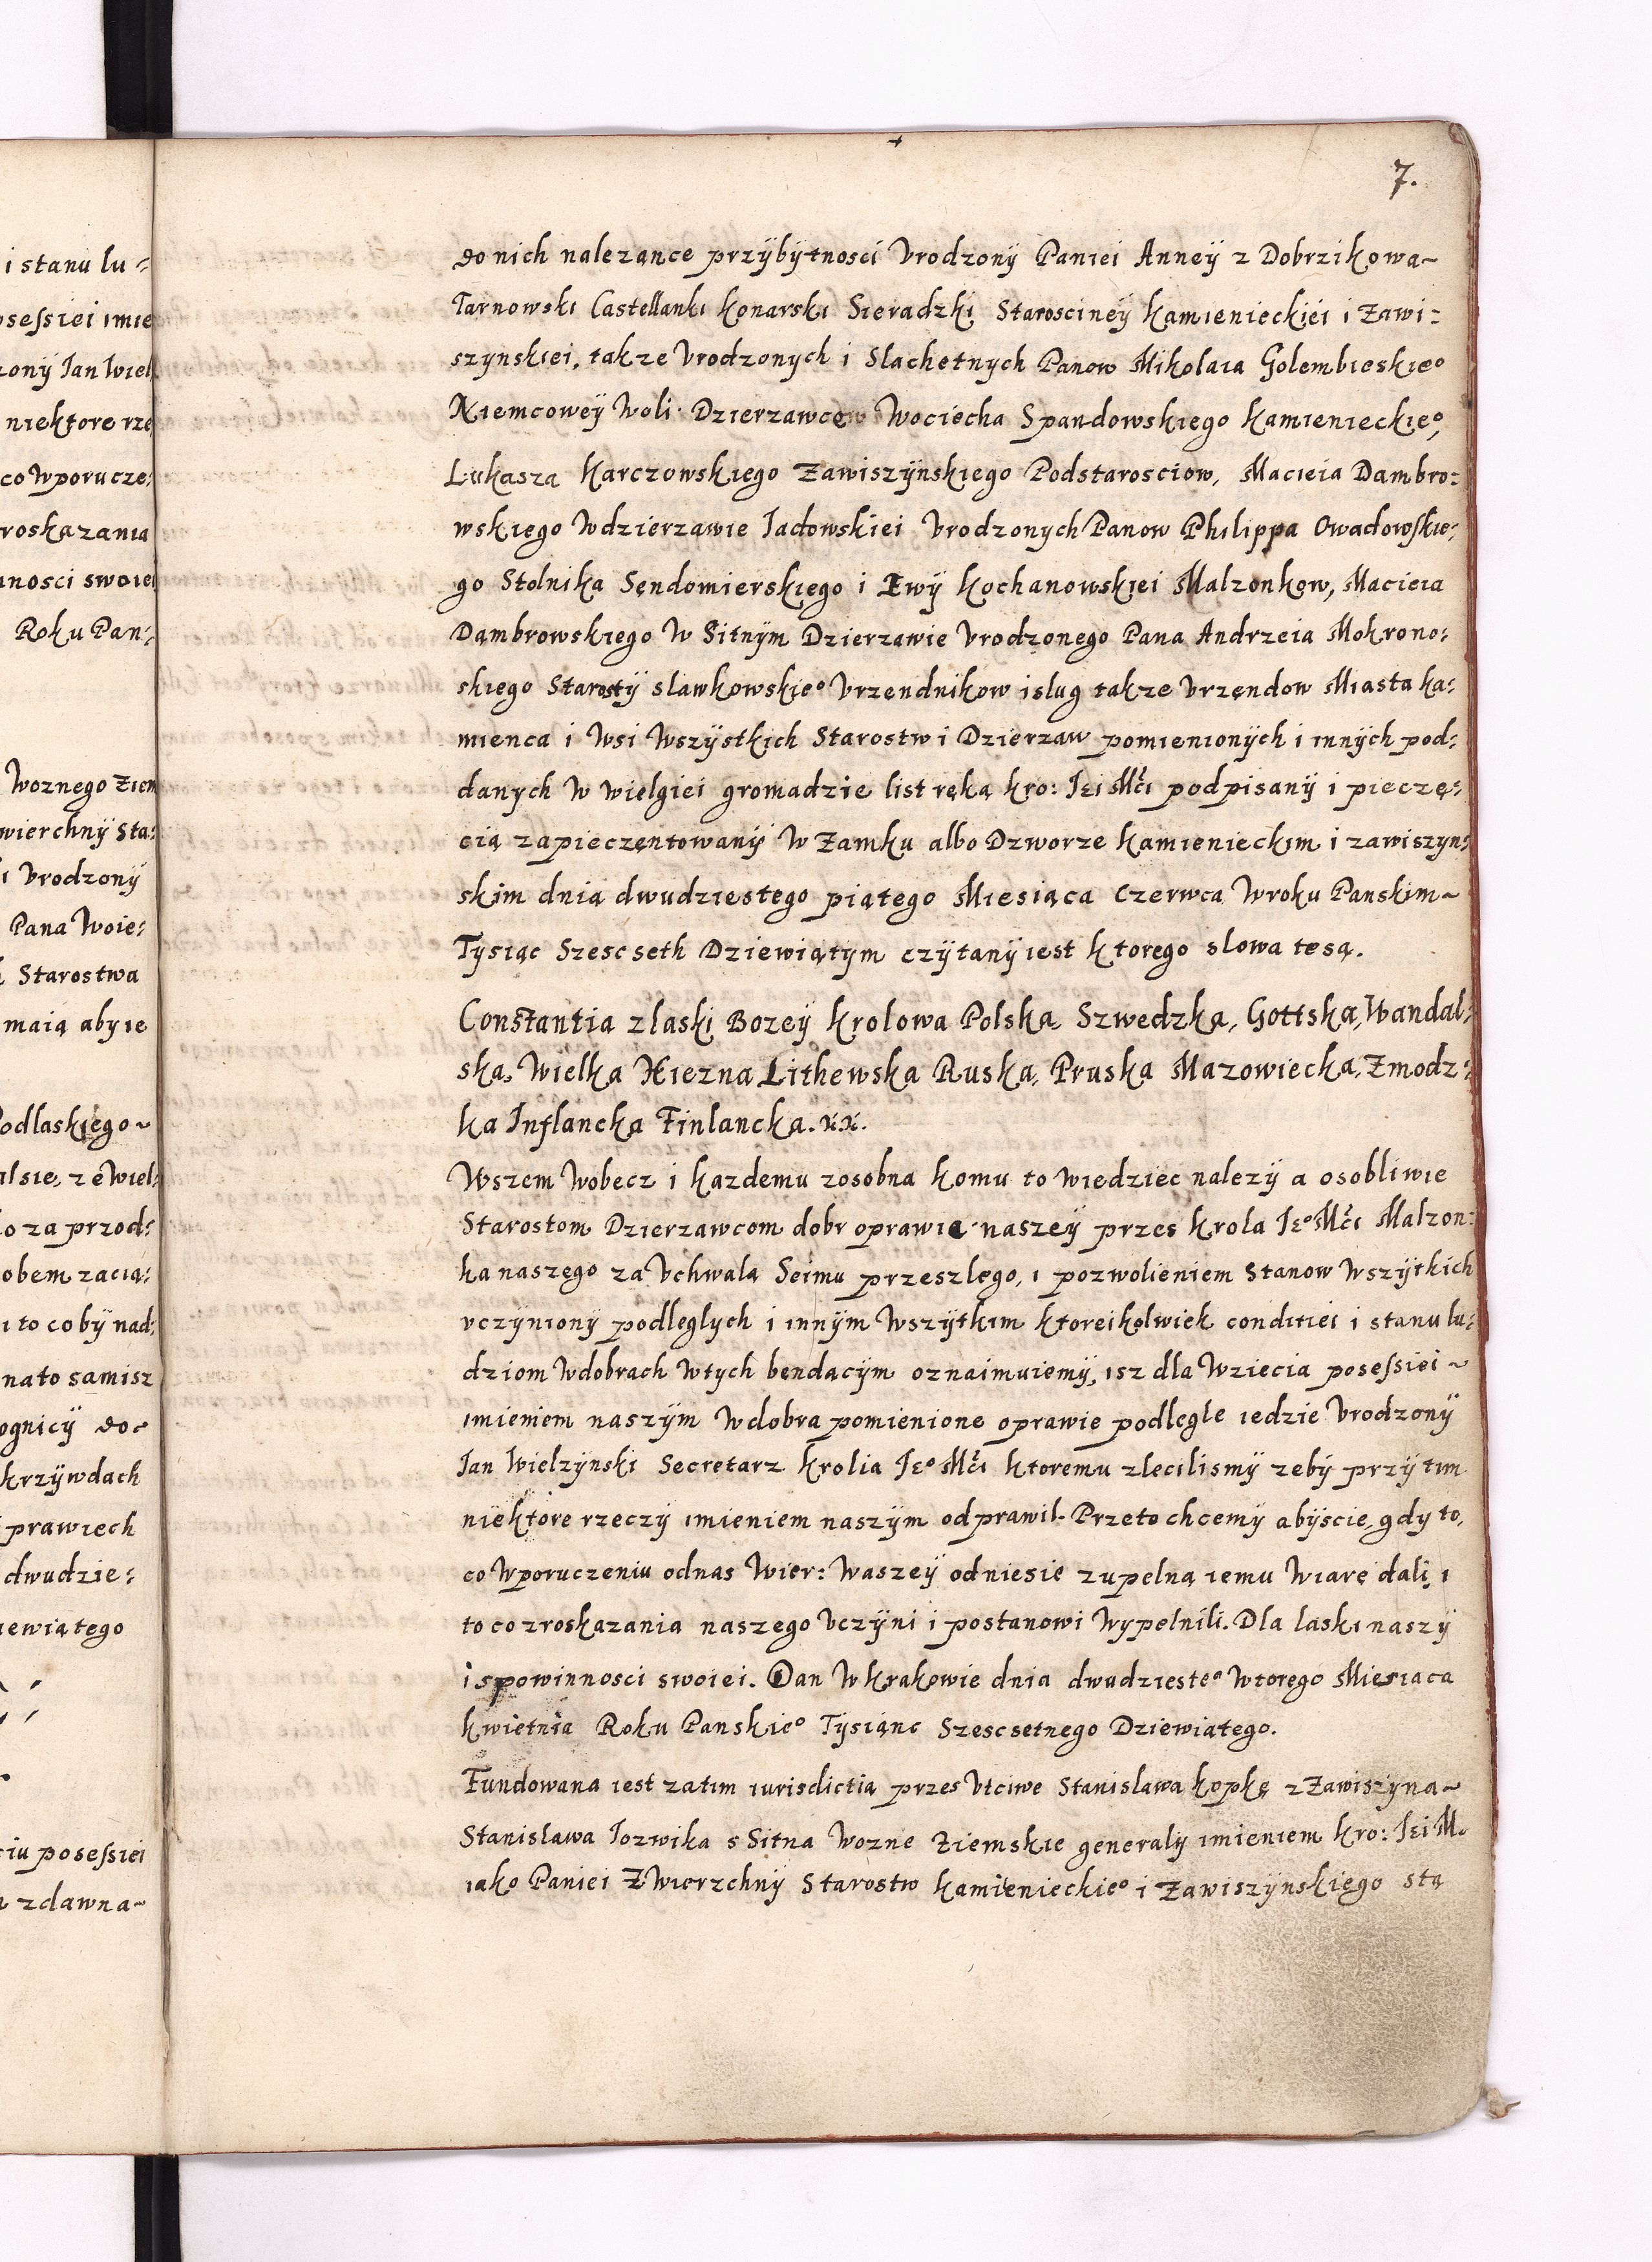 7.
i stanu lu=
sessiei imie
zony Jan Wiel
niektore rze
co wporucze:
roskazania
nnosci swoiei
Roku Pan:
Woznego Ziem
wierchny sta:
i Vrodzony
Pana Woie:
Starostwa
maią aby ie
Podlaskiego~
al sie, ze wiel:
o za przod:
obem zacią:
i to coby nad:
na to samisz
ognicy do:
krzÿwdach
prawiech
dwudzie:
iewiątego
ciu posessiei
zdawna~
do nich nalezance przÿbÿtnosci Vrodzonÿ Paniei Anneÿ z Dobrzikowa~
Tarnowski Castellanki Konarski Sieradzki Staroscineÿ Kamienieckiei i Zawi:
szynskiei, takze Vrodzonych i Slachetnych Panow Mikolaia Golembieskieº
Niemcoweÿ Woli Dzierzawcow Wociecha Spandowskiego Kamienieckieº,
Lukasza Karczowskiego Zawiszÿnskiego Podstarosciow, Macieia Dambro:
wskiego Wdzierzawie Jadowskiei Vrodzonych Panow Philippa Owadowskie:
go Stolnika Sendomierskiego i Ewÿ Kochanowskiei Malzonkow, Macieia
Dąmbrowskiego W Sitnÿm Dzierzawie Vrodzonego Pana Andrzeia Mokrono:
skiego Starostÿ slawkowskieº Vrzendnikow i slug takze Vrzędow Miasta Ka:
mienca i Wsi Wszÿstkich Starostw i Dzierzaw pomienionÿch i innÿch pod:
danych W wielgiei gromadzie list ręką kro: Jei Mći podpisanÿ i pieczę:
cią zapieczętowanÿ W Zamku albo Dzworze Kamienieckim i zawiszyn:
skim dnia dwudziestego piątego Miesiąca Czerwca Wroku Panskim~
Tysiąc Szescseth Dziewiątym czÿtanÿ iest ktorego slowa te są.
Constantia z laski Bozeÿ Krolowa Polska, Szwedzka, Gottska, Wandal:
ska, Wielka Xiezna Lithewska Ruska, Pruska Mazowiecka, Zmodz:
ka Inflancka Finlancka. xx.
Wszem Wobecz i kazdemu zosobna komu to wiedziec nalezÿ a osobliwie
Starostom Dzierzawcom dobr oprawie naszeÿ przes Krola Jeº Mći Malzon:
ka naszego za Vchwalą Seimu przeszlego, i pozwolieniem Stanow Wszÿtkich
vczÿnionÿ podleglych i innÿm Wszÿtkim ktoreikolwiek conditiei i stanu lu:
dziom Wdobrach Wtych bendącÿm oznaimuiemÿ, isz dla Wziecia posessiei~
imieniem naszÿm Wdobra pomienione oprawie podlegle iedzie Vrodzonÿ
Jan Wielzynski Secretarz Krolia Jeº Mći ktoremu zlecilismÿ zebÿ przÿ tim
niektore rzeczÿ imieniem naszÿm odprawil. Przeto chcemy abÿscie, gdy to,
co Wporuczeniu od nas Wier: Waszeÿ odniesie zupelną iemu Wiarę dali, i
to co zroskazania naszego Vczÿni i postanowi Wypelnili. Dla laski naszÿ
i spowinnosci swoiei. Dan W Krakowie dnia dwudziesteº wtorego Miesiaca
kwietnia Roku Panskieº Tÿsiąnc Szescsetnego Dziewiątego.
Fundowana iest zatim iurisdictia przes Vtciwe Stanislawa Kopkę z Zawiszÿna~
Stanislawa Jozwika s Sitna Wozne Ziemskie generalÿ imieniem Kro: Jei M.
iako Paniei Zwierzchnÿ Starostw Kamienieckieº i Zawiszÿnskiego sta